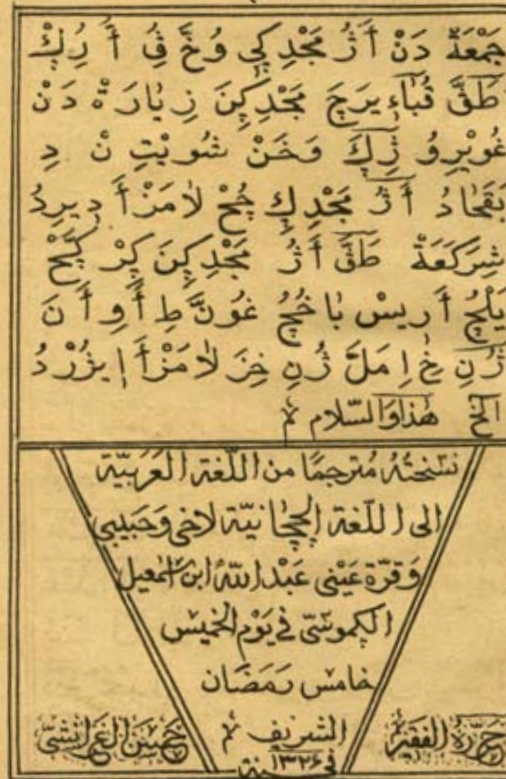 جمْعَةْ دَنْ أَژُ مَجْدِكِي وُخَّ قُ أَ رُكْ
طَقَّ قُبَاءِ يرَجَ مَجْدِكِنَ زِيَارَةْ دَنْ
غُويْرِوُ ژِكَ وَخَنْ شُويْتِ نْ دِ
بَقَحَادُ أَژُ مَجْدِكِ چُحْ لَامَزْ أَ دِيرِدُ
شِرَكَعَةْ طَقَّ أَژُ مَجْدِكِنَ
يَلْچُ أَرِيسْ بَاخُچُ غُونَّطِ أَوِ أَنَ
لَامَزْ أَ إِيژُرْدُ
الخ هٰذا وَالسّلام
نسَختُهُ مُترجمًا من اللّغة العَرَبيّة
الى اللّغة الچچانيّة لاخى وَحَبيبى
وَقرّة عَيْنى عَبْد اللّٰه ابن اسمٰعيل
الكموشىّ فى يَوْم الخميس
خامس رَمَضَان
الشريف
فى سنة ١٣٢٦
حرّره الفقير